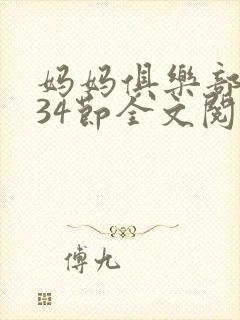 妈妈俱樂部
34節全文閱
傅九